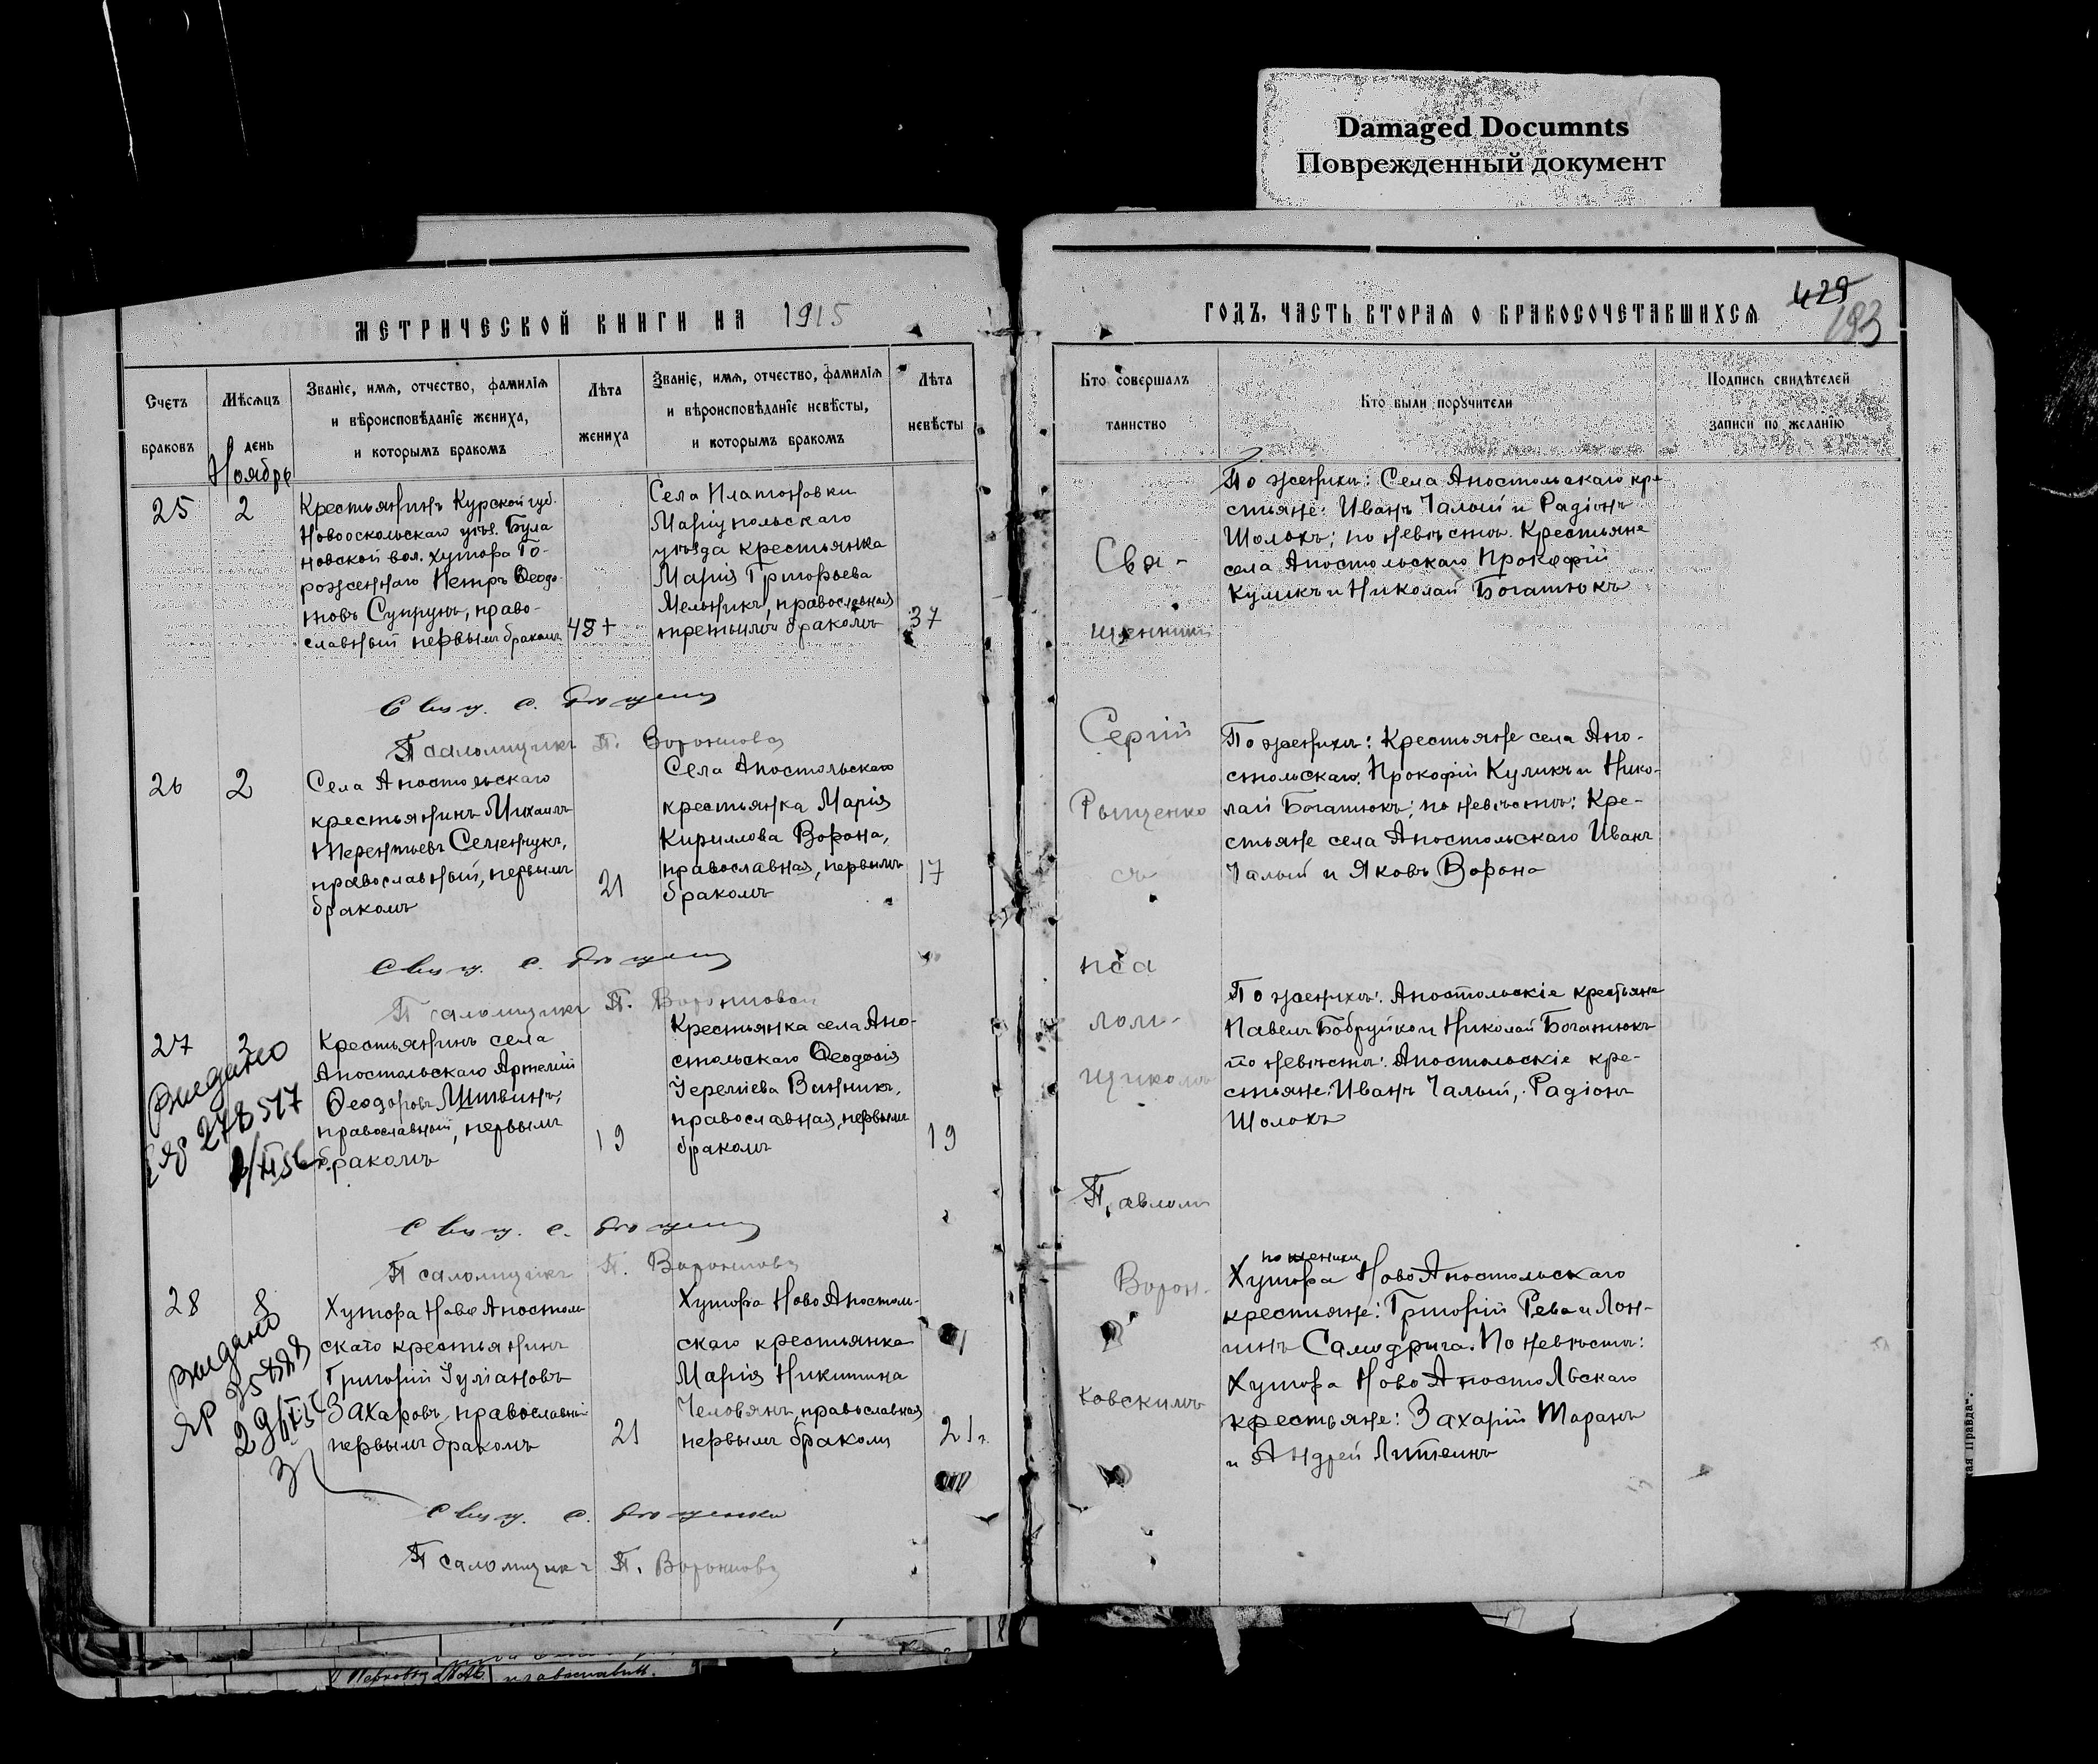 Damaged Documnts
Поврежденный документ
МЕТРИЧЕСКОЙ КНИГИ НА 1915
Счетъ браковъ
Мѣсяцъ день
Ноябрь
Званіе, имя, отчество, фамилія
и вѣроисповѣданіе жениха,
и которымъ бракомъ
Лѣта
жениха
Званіе, имя, отчество, фамилія
и вѣроисповѣданіе невѣсты,
и которымъ бракомъ
Лѣта
невѣсты
25
2
Крестьянинъ Курской губ.
Новооскольскаго уѣз. Була
новской вол. хутора Го-
роженнаго Петръ Ѳеодо
товъ Супрунъ, право-
славный первымъ бракомъ
48+
Села Платоновки
Маріупольскаго
уѣзда крестьянка
Марія Григорьева
Мельникъ, православная
третьимъ бракомъ
37
Псаломщикъ П.
26
2
Села Апостольскаго
крестьянинъ Михаилъ
Терентьевъ Семенчукъ,
православный, первымъ
бракомъ
21
Села Апостольскаго
крестьянка Марія
Кириллова Ворона,
православная, первымъ
бракомъ
17
Псаломщикъ П.
27
2
Выдано
278517
Крестьянинъ села
Апостольскаго Артемій
Ѳеодоровъ Литвинъ,
православный, первымъ
бракомъ
19
Крестьянка села Апо-
стольскаго Ѳеодосія
Іереміева Винникъ,
православная, первымъ
бракомъ
19
Псаломщикъ П.
28
8
Выдано
Хутора Ново Апостоль
скаго крестьянинъ
Григорій Іуліановъ
Захаровъ, православный
первымъ бракомъ
21
Хутора Ново Апостоль-
скаго крестьянка
Марія Никитина
православная
первымъ бракомъ
21
Псаломщикъ П.
ГОДЪ, ЧАСТЬ ВТОРАЯ О БРАКОСОЧЕТАВШИХСЯ
429
193
Кто совершалъ
таинство
Кто были поручители
Подпись свидѣтелей
записи по желанію
Свя-
щенникъ
Сергій
съ
пса
лом-
щикомъ
Павломъ
Ворон-
ковскимъ
По женихѣ: Села Апостольскаго кре
стьяне: Иванъ Чалый и Радіонъ
Шолохъ; по невѣстѣ. Крестьяне
села Апостольскаго Прокофій
Куликъ и Николай Богатюкъ
По женихѣ: Крестьяне села Апо-
стольскаго, Прокофій Куликъ и Нико-
лай Богатюкъ; по невѣстѣ: Кре-
стьяне села Апостольскаго Иванъ
Чалый и Яковъ Ворона
По женихѣ: Апостольскіе крестьяне
Павелъ Бобруйко и Николай Богатюкъ
по невѣстѣ: Апостольскіе кре-
стьяне: Иванъ Чалый, Радіонъ
Шолохъ
по женихѣ
Хутора Ново Апостольскаго
крестьяне: Григорій Рева и Лон-
гинъ Самодрыга. По невѣстѣ:
Хутора Ново Апостольскаго
крестьяне: Захарій Таранъ
и Андрей Литвинъ